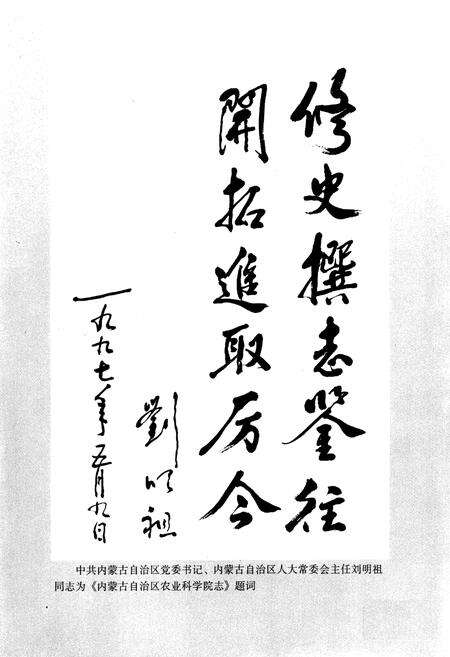 修史撰志鉴往
開拓進取厉今
劉明祖
一九九七年五月九日
中共内蒙古自治区党委书记、内蒙古自治区人大常委会主任刘明祖
同志为《内蒙古自治区农业科学院志》题词